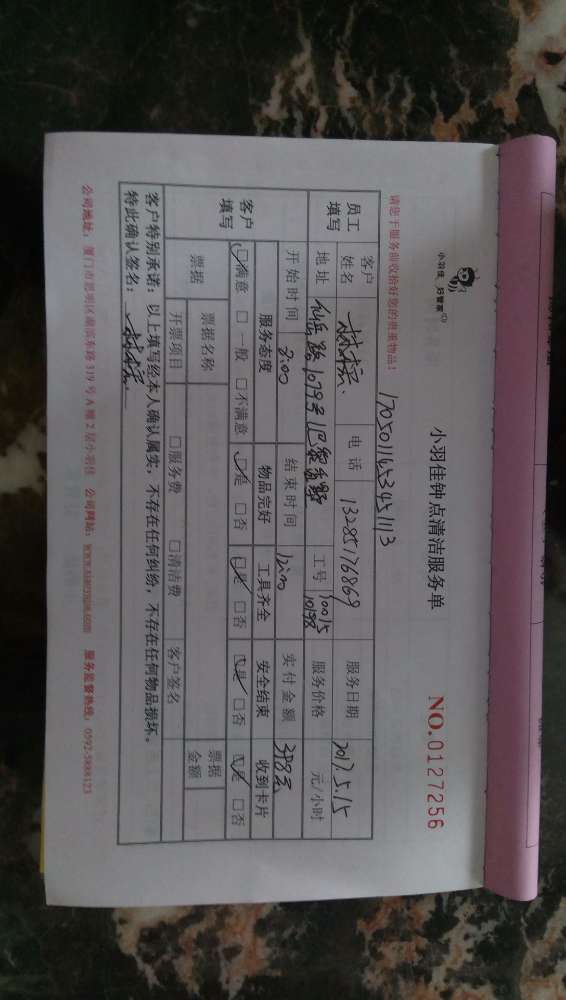 小羽佳 好管家
小羽佳钟点清洁服务单
NO.0127256
请您于服务前收拾好您的贵重物品！
17050116534511113
员工填写 客户姓名 电话 服务日期 2017.5.15
地址 仙岳路1079号 工号 10015 10198 服务价格 元/小时
开始时间 8:00 结束时间 12:00 实付金额
客户填写 服务态度 物品完好 工具齐全 安全结束 收到卡片
□满意 □一般 □不满意 □是 □否 □是 □否 □是 □否 □是 □否
票据 票据名称 票据金额
开票项目 □服务费 □清洁费 客户签名
客户特别承诺：以上填写经本人确认属实，不存在任何纠纷，不存在任何物品损坏。
特此确认签名：
公司地址：厦门市思明区湖滨东路319号A幢2层小羽佳 公司网站：www.xiaoyujia.com 服务监督热线：0592-5888123